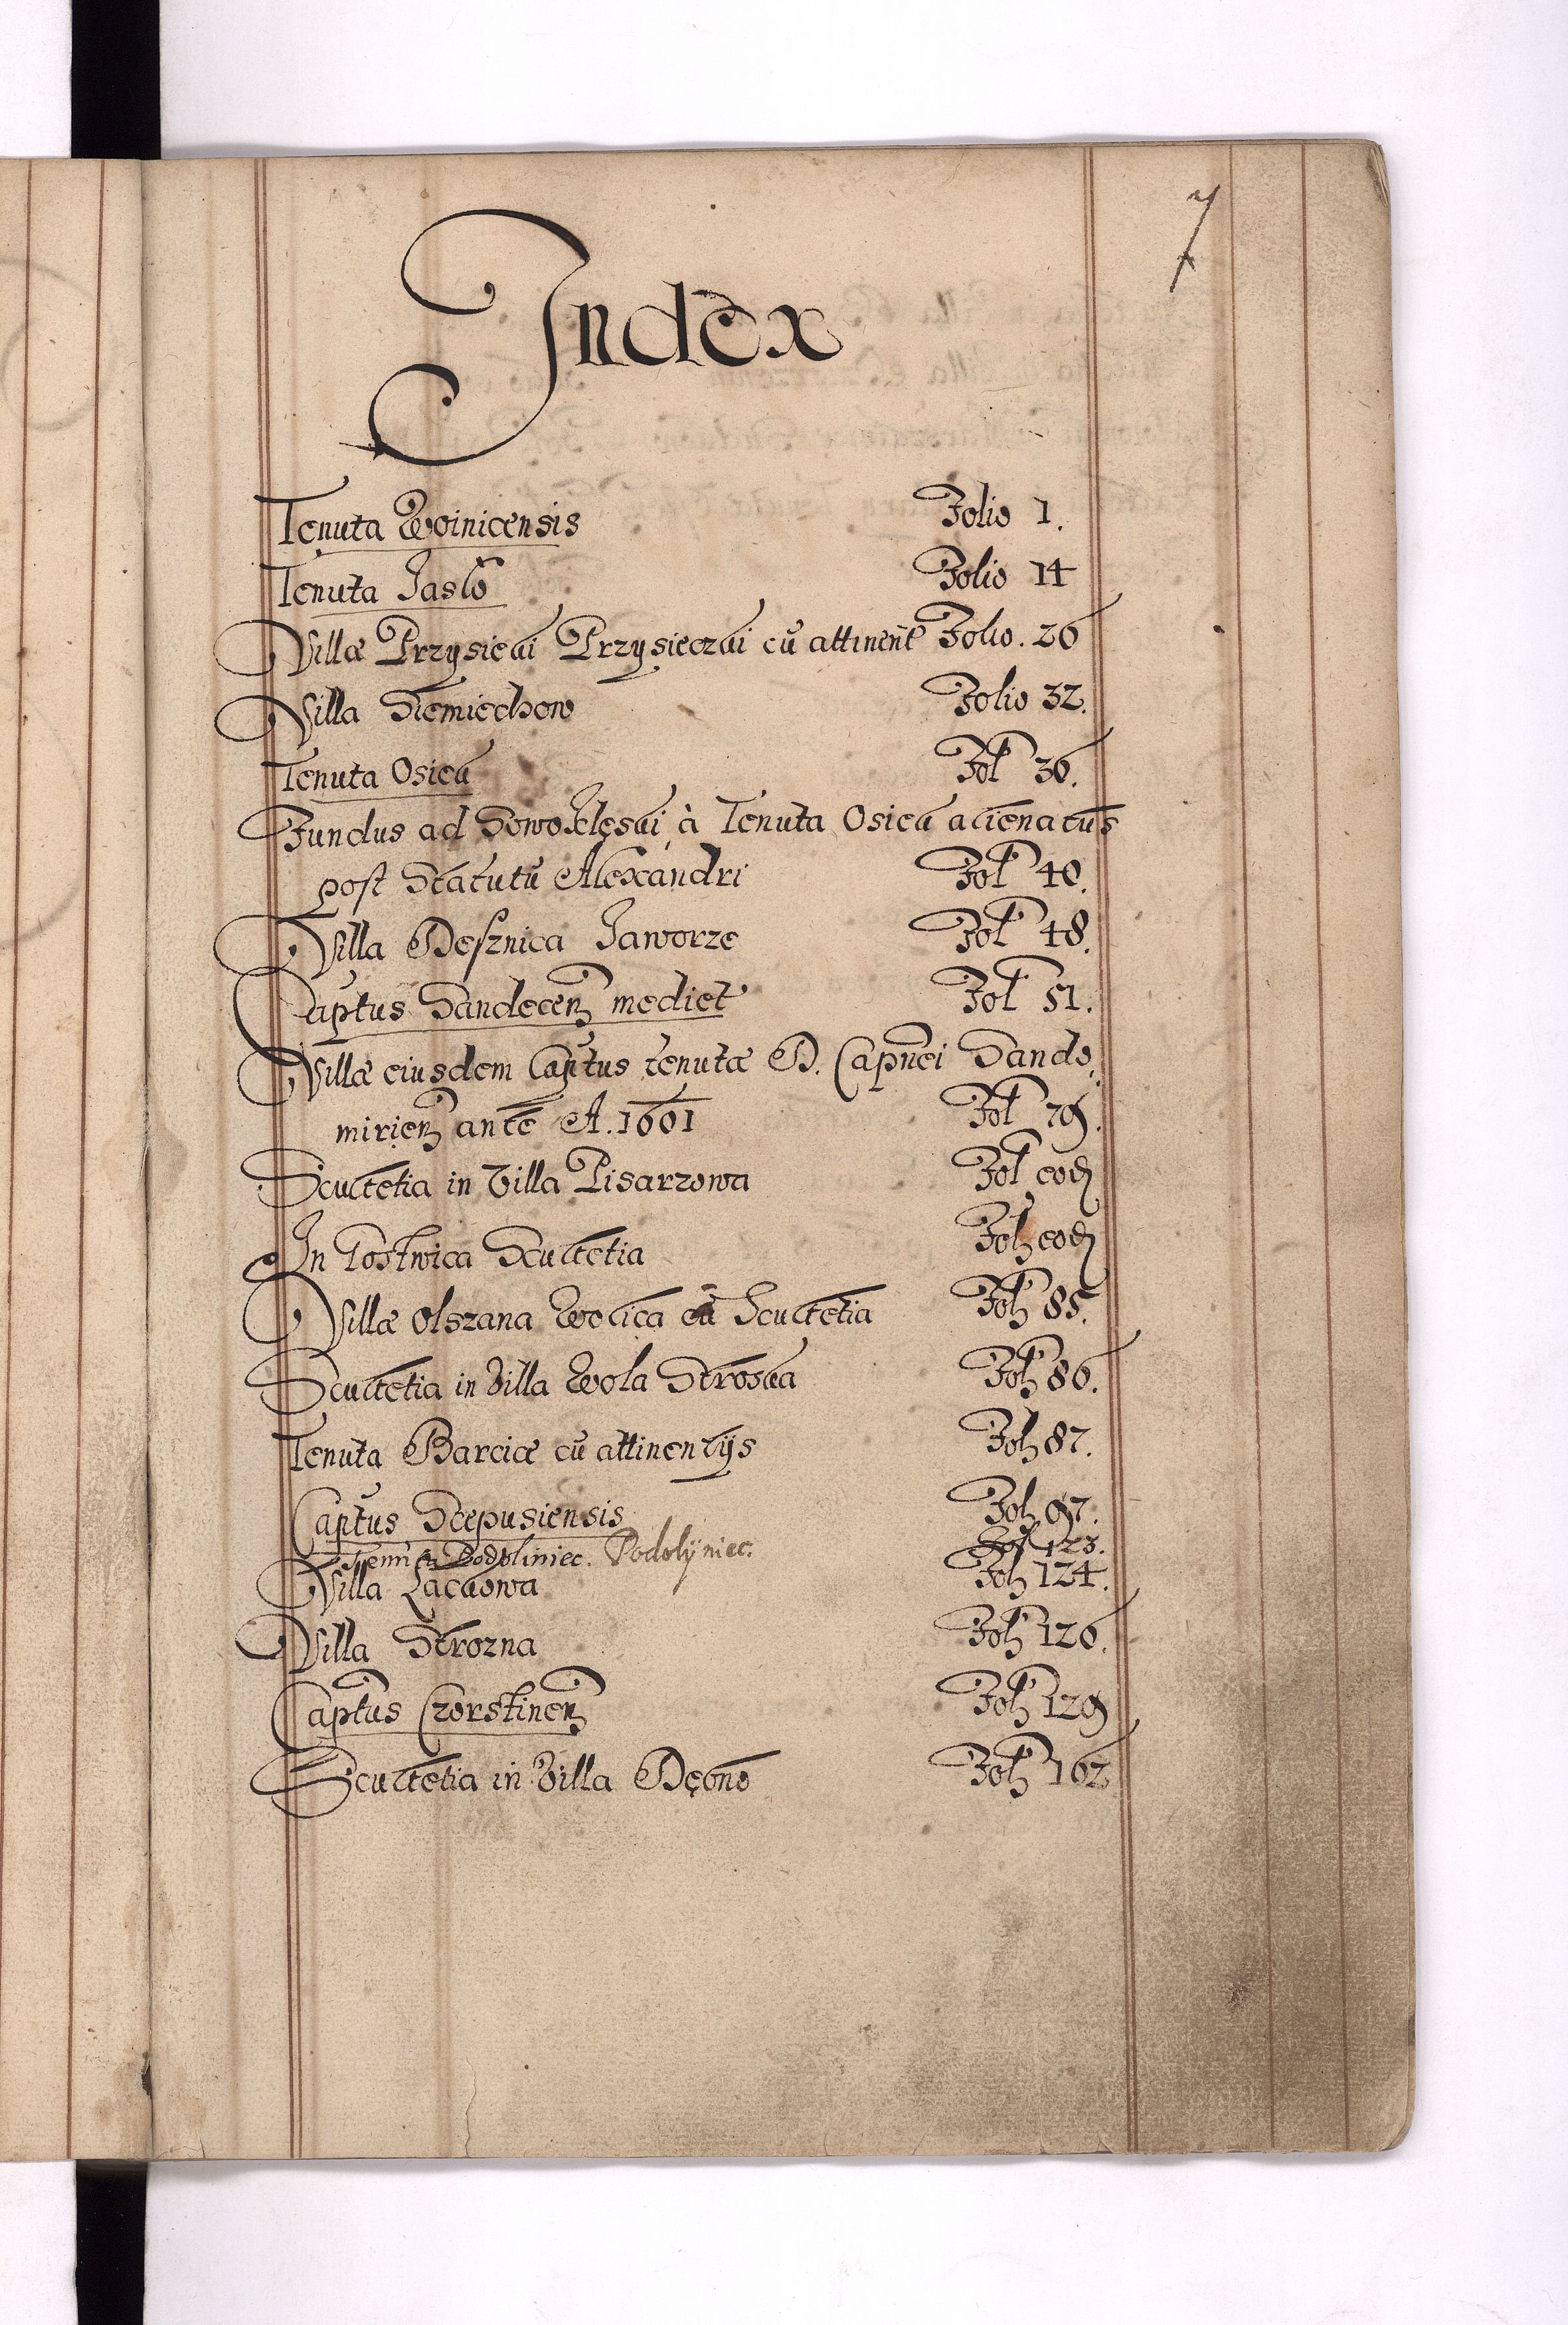 7
Index
Tenuta Woinicensis Folio 1.
Tenuta Jaslo Folio 14
Villæ Przysieki Przysieczki cũ attinent Folio. 26
Villa Siemiechow Folio 32.
Tenuta Osiek Fol 36.
Fundus ad à Tenuta Osiek alienatus
post Statutũ Alexandri Fol 40.
Villa Desznica Jaworze Fol 48.
Captus Sandecen mediet Fol 51.
Villæ eiusdem Captus tenutæ D. Capnei Sando
mirien ante A. 1601 Fol 79.
Scultetia in Villa Pisarzowa Fol eod
In Scultetia Fol eod
Villæ Olszana Wolica cũ Scultetia Fol 85.
Scultetia in Villa Wola Stroska Fol 86.
Tenuta Barcice cũ attinentijs Fol 87.
Captus Scepusiensis Fol 97.
Podoliniec. Podolÿniec. Fol 123.
Villa Fol 124.
Villa Strozna Fol 126.
Captus Czorstinen Fol 129
Scultetia in Villa Fol 162